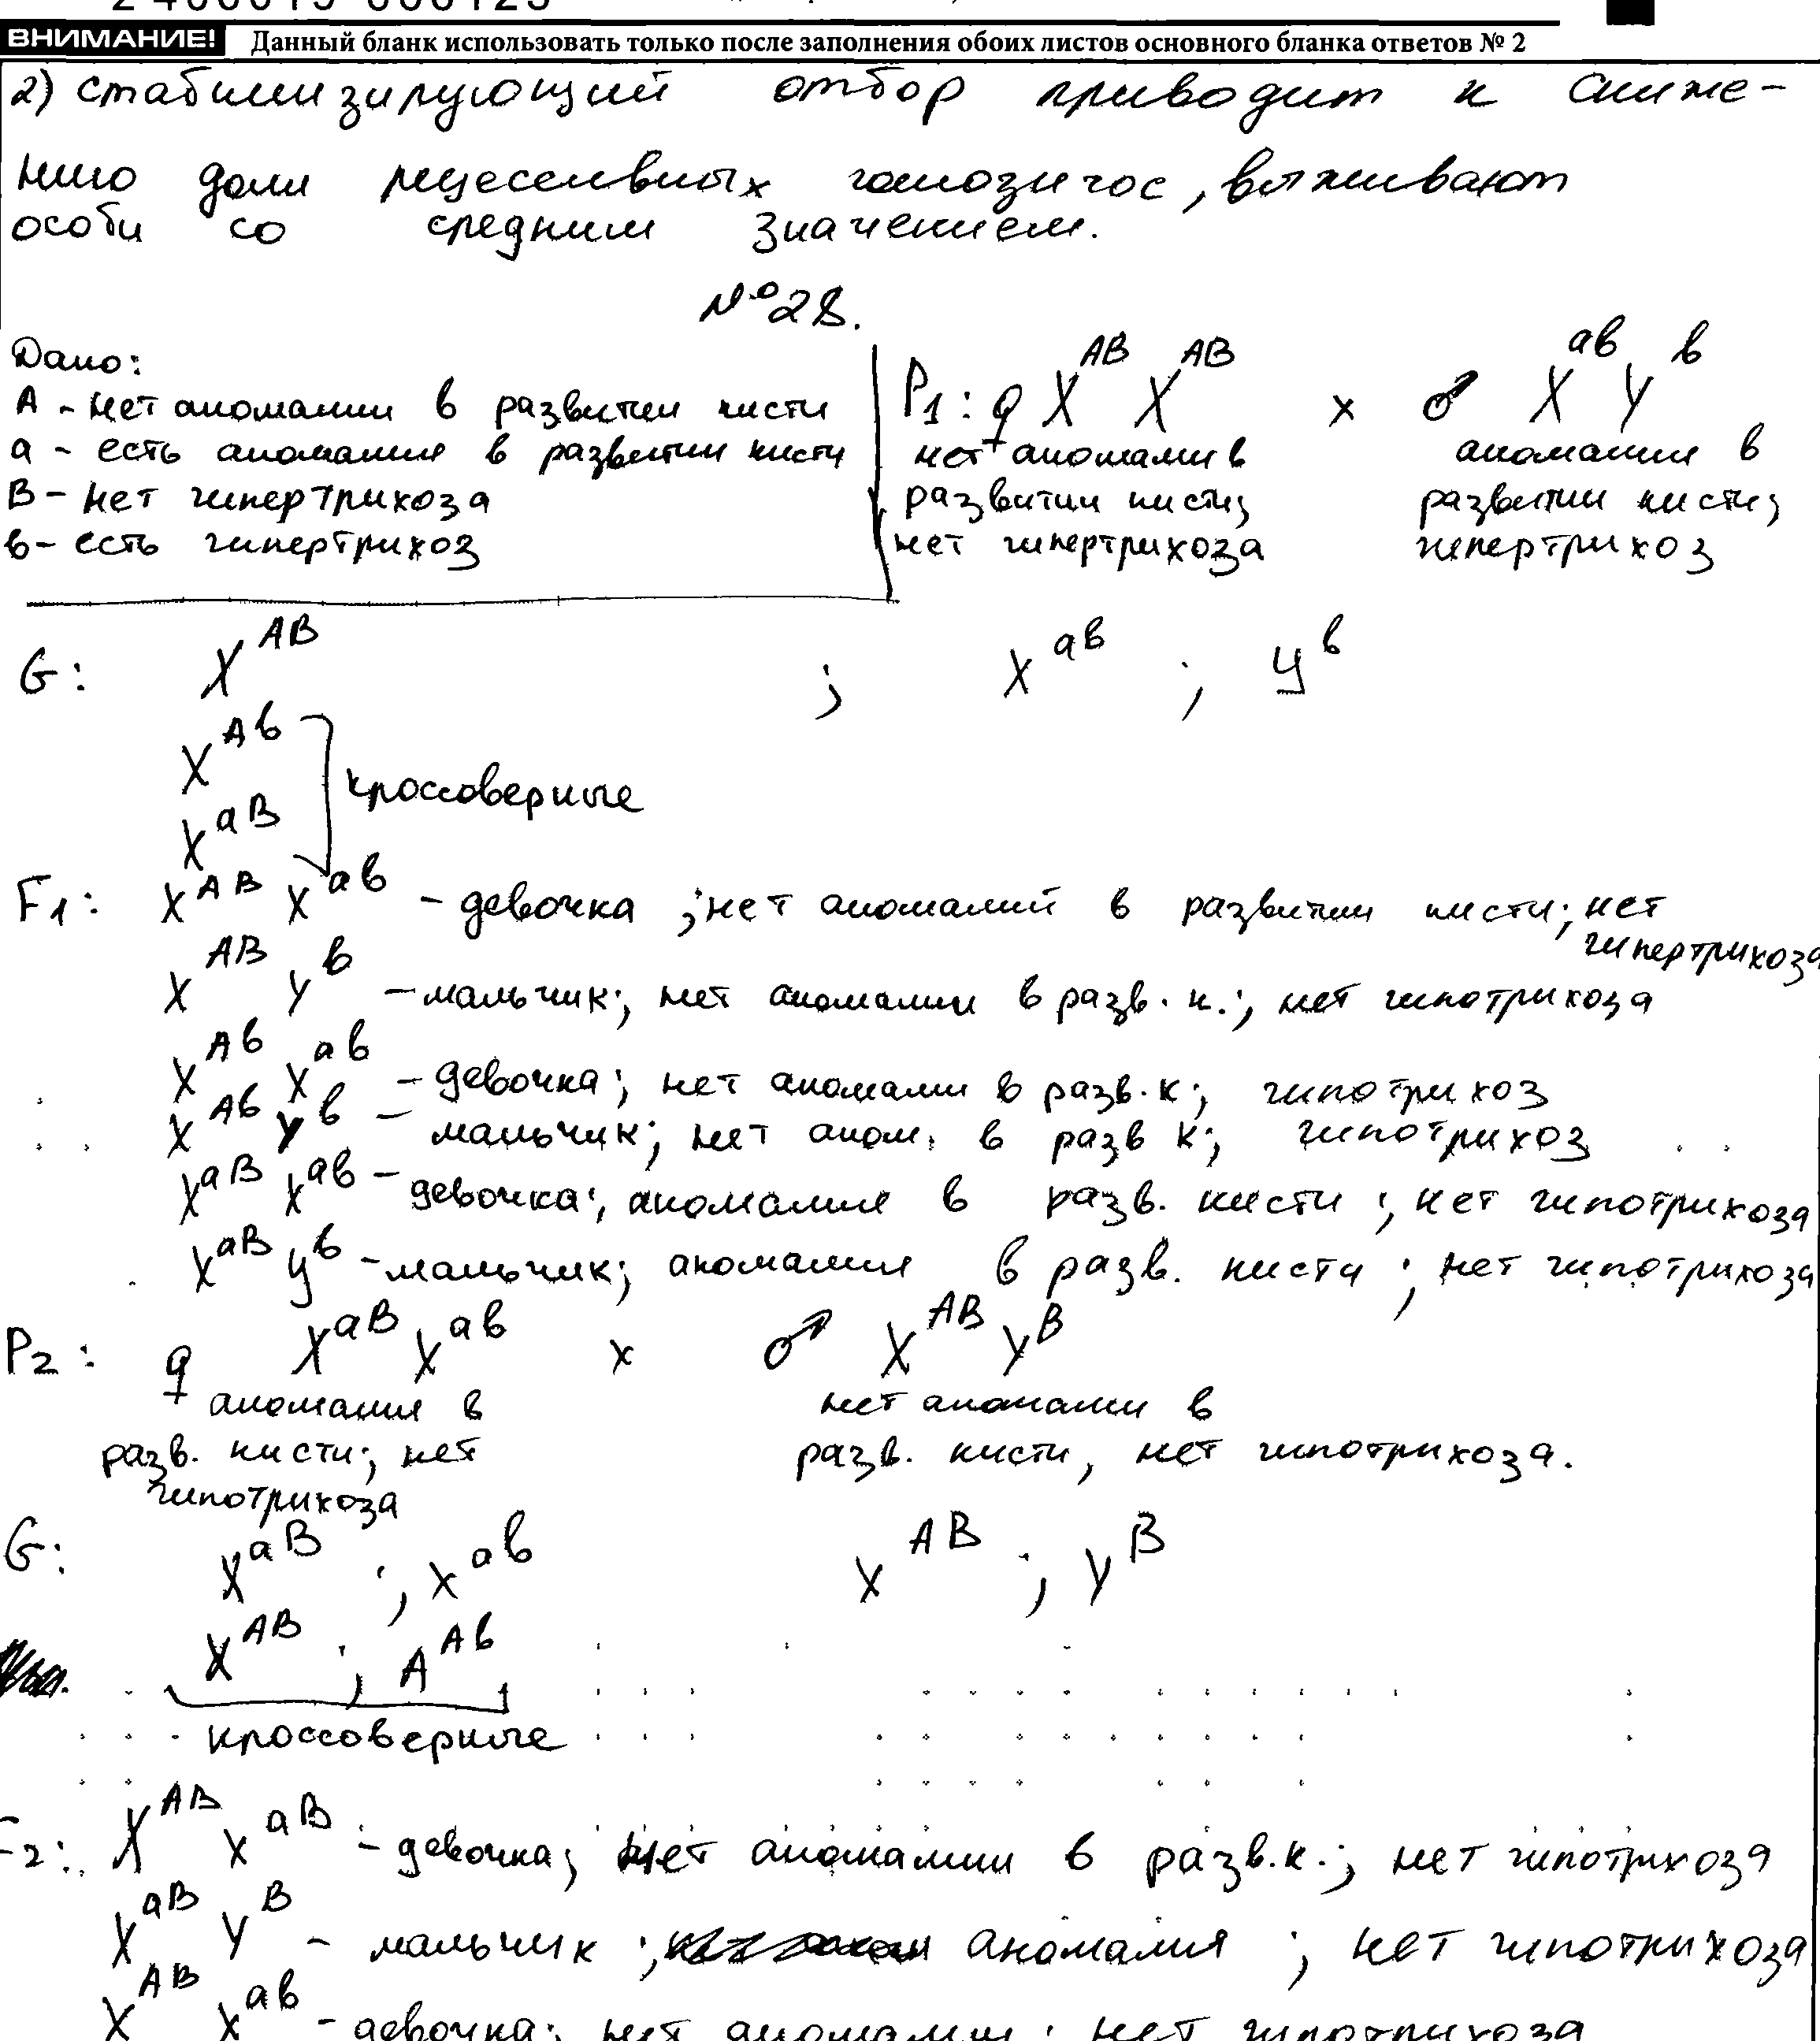 2 400019 000125
ВНИМАНИЕ! Данный бланк использовать только после заполнения обоих листов основного бланка ответов № 2
2) стабилизирующий отбор приводит к сниже-
нию доли рецессивных гомозигос, выживают
особи со средним значением.
№ 28.
Дано:
А - нет аномалии в развитии кисти
а - есть аномалия в развитии кисти
В - нет гипертрихоза
в - есть гипертрихоз
P1: ♀ X^AB X^AB x ♂ X^ab Y^b
нет аномалии в
развитии кисти;
нет гипертрихоза
аномалия в
развитии кисти;
гипертрихоз
G: X^AB ; X^ab ; Y^b
X^Ab
X^aB
кроссоверные
F1: X^AB X^ab - девочка; нет аномалий в развитии кисти; нет
гипертрихоза
X^AB Y^b - мальчик; нет аномалии в разв. к.; нет гипотрихоза
X^Ab X^ab - девочка; нет аномали в разв. к; гипотрихоз
X^Ab Y^b - мальчик; нет аном. в разв к; гипотрихоз
X^aB X^ab - девочка; аномалия в разв. кисти; нет гипотрихоза
X^aB Y^b - мальчик; аномалия в разв. кисти; нет гипотрихоза
P2: ♀ X^aB X^ab x ♂ X^AB Y^B
аномалия в
разв. кисти; нет
гипотрихоза
нет аномалии в
разв. кисти, нет гипотрихоза.
G: X^aB ; X^ab X^AB ; Y^B
X^AB ; A^Ab
кроссоверные
F2: X^AB X^aB - девочка; нет аномалии в разв.к.; нет гипотрихоза
X^aB Y^B - мальчик; аномалия; нет гипотрихоза
X^AB X^ab - девочка; нет аномалии; нет гипотрихоза